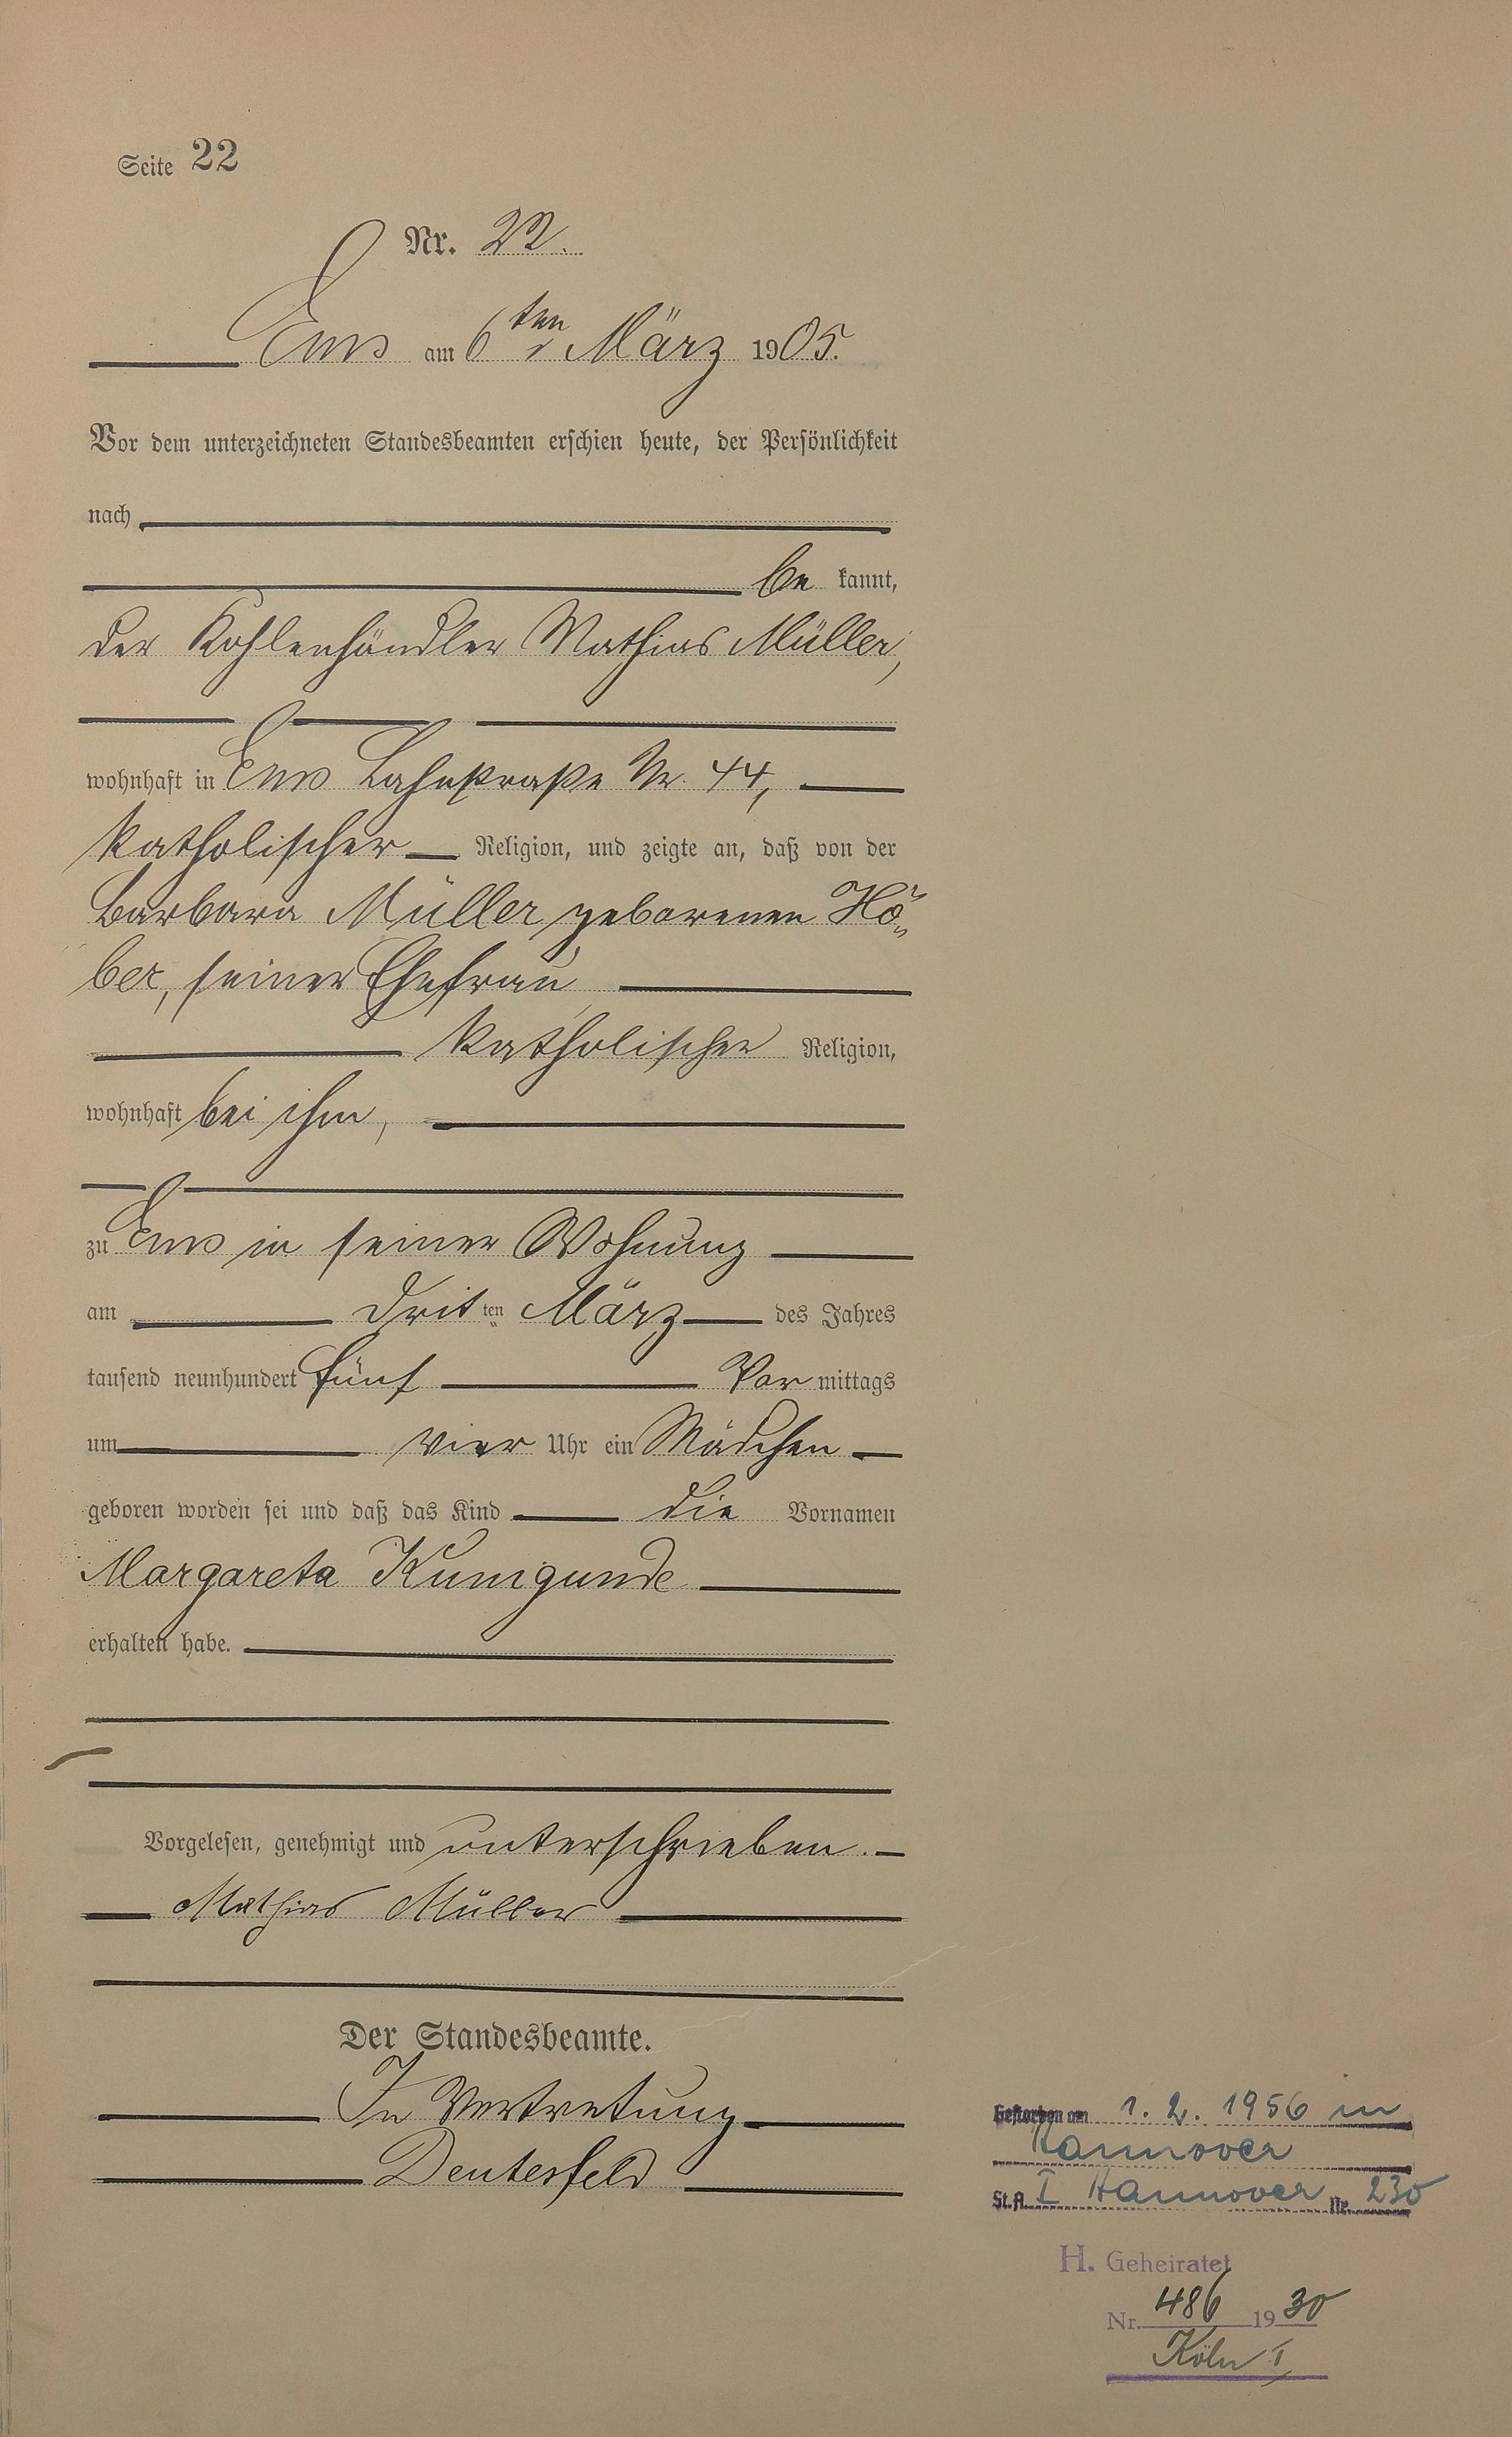 Seite 22
Nr. 22.
Ems am 6ten März 1905.
Vor dem unterzeichneten Standesbeamten erschien heute, der Persönlichkeit
nach
be kannt,
der Kohlenhändler Mathias Müller,
wohnhaft in Ems Lahnstraße Nr. 44,
katholischer Religion, und zeigte an, daß von der
Barbara Müller geborenen Hö-
ber, seiner Ehefrau,
katholischer Religion,
wohnhaft bei ihm,
zu Ems in seiner Wohnung
am drit ten März des Jahres
tausend neunhundert fünf Vor mittags
um vier Uhr ein Mädchen
geboren worden sei und daß das Kind die Vornamen
Margareta Kunigunde
erhalten habe.
Vorgelesen, genehmigt und unterschrieben.
Mathias Müller
Der Standesbeamte.
In Vertretung
Deutesfeld
Gestorben am 1. 2. 1956 in
Hannover
St.A. I Hannover Nr. 230
H. Geheiratet
Nr. 486 1930
Köln I